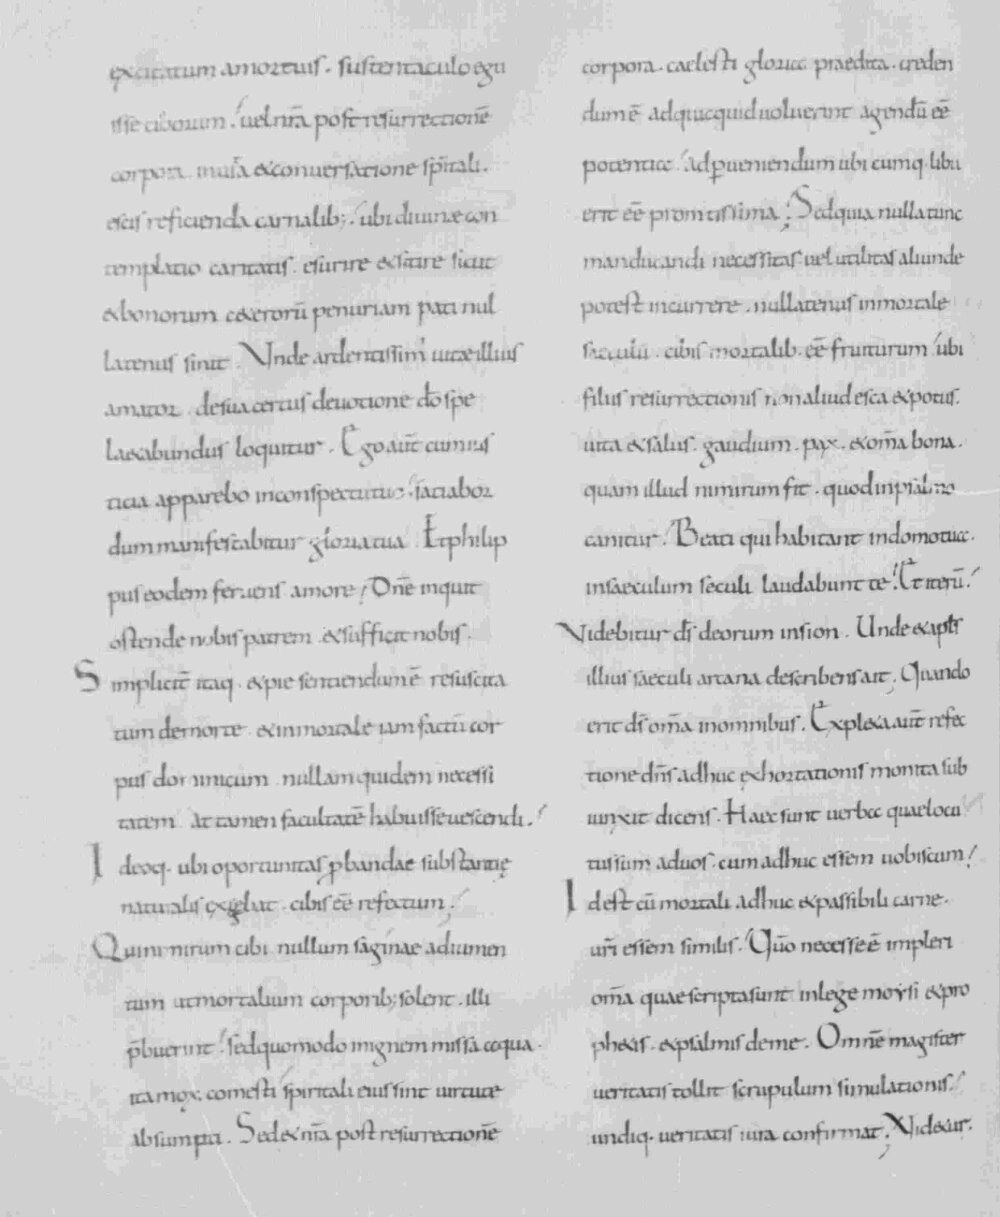 excitatum amortuis. sustentaculo egu
isse ciborum. uel nr̄a post resurrectionē
corpora. inuisa & conuersatione sp̄itali.
escis reficienda carnalib;. ubi diuinæ con
templatio caritatis. esurire & sitire sicut
& bonorum c&erorū penuriam pati nul
latenus sinit. Unde ardentissim' uitæ illius
amator. de sua certus deuotione d̄o spe
l&abundus loquitur. Ego aut̄ cum ius
ticia apparebo in conspectu tuo. satiabor
dum manifestabitur gloria tua. Et philip
pus eodem feruens amore. Dn̄e inquit
ostende nobis patrem & sufficit nobis.
Simplicit̄ itaq. & pie sentiendum ē resuscita
tum de morte & inmortale iam factū cor
pus dominicum. nullam quidem necessi
tatem. at tamen facultatē habuisse uescendi.
Ideoq. ubi oportunitas p̄bandae substantię
naturalis exigebat. cibis eē refectum.
Qui ni mirum cibi. nullum saginae adiumen
tum ut mortalium corporib; solent. illi
p̄buerint. sed quomodo in ignem missa aqua.
ita mox comesti spiritali eius sint uirtute
absumpti. Sed & nr̄a post resurrectionē
corpora. caelesti gloria praedita. creden
dum ē ad quicquid uoluerint agendū eē
potentia. ad perueniendum ubicumq. libu
erit eē promtissima; Sed quia nulla tunc
manducandi necessitas uel utilitas aliunde
potest incurrere. nullatenus inmortale
saeculū. cibis mortalib. eē fruiturum ubi
filiis resurrectionis non aliud esca & potus.
uita & salus. gaudium. pax. & om̄a bona.
quam illud nimirum fit. quod in psalmo
canitur. Beati qui habitant in domo tua.
in saeculum saeculi laudabunt te. Et iterū.
Videbitur dī deorum in sion. Unde & apl̄s
illius saeculi arcana describens ait. Quando
erit dī om̄a in omnibus. Expleta aut̄ refec
tione dn̄s adhuc exhortationis monita sub
iunxit dicens. Haec sunt uerba quae locu
tus sum ad uos. cum adhuc essem uobiscum.
Id est cū mortali adhuc & passibili carne.
ur̄i essem similis. Qūo necesse ē impleri
om̄a quae scripta sunt in lege moysi & pro
ph&is. & psalmis de me. Omnē magister
ueritatis tollit scrupulum simulationis.
undiq. ueritatis iura confirmat; Videtur.